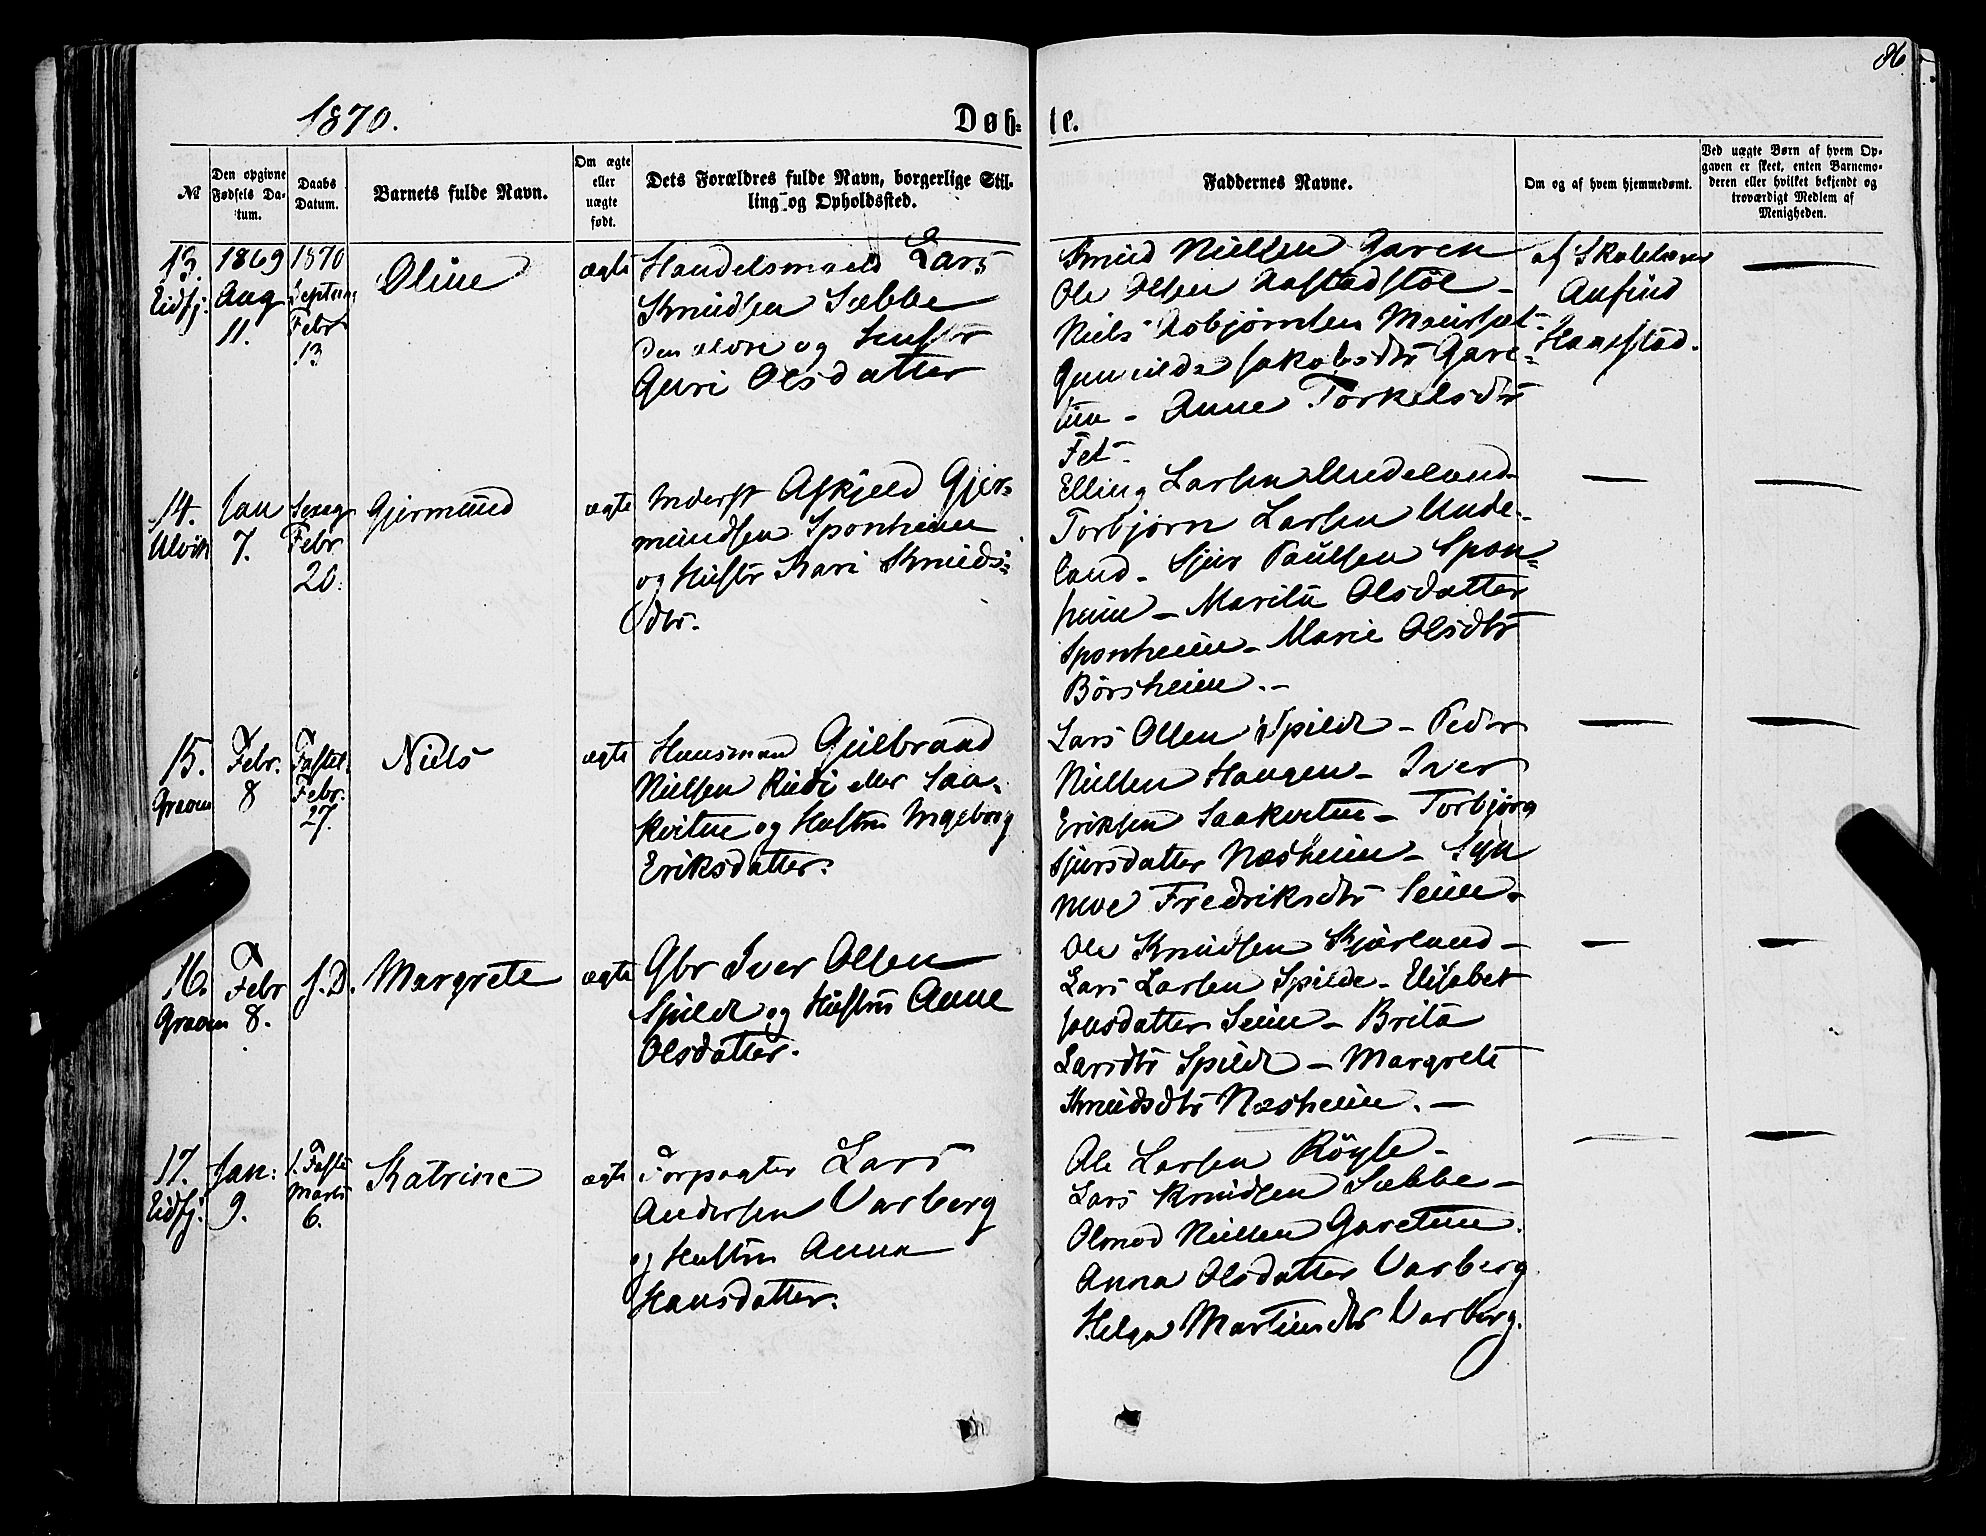 86
1870.
Døb-
te.
№
Den opgivne Fødsels Datum.
Daabs Datum.
Barnets fulde Navn.
Om ægte eller uægte født.
Dets Forældres fulde Navn, borgerlige Stilling og Opholdssted.
Faddernes Navne.
Om og af hvem hjemmedømt.
Ved uægte Børn af hvem Opgaven er skeet, enten Barnemoderen eller hvilket bekjendt og troværdigt Medlem af Menigheden.
13.
Eidfj:
1869
Aug
11.
1870
Septuag
Febr
13
Oline
ægte
Handelsmand Lars
Knudsen Sæbbe
den ældre og Hustr
Guri Olsdatter
Knud Nielsen Garen
Ole Olsen Aastadstøl -
Niels Asbjørnsen Maursæt -
Gunnilda Jakobsdtr Gare-
tun - Anne Torkelsdtr
Fet -
af Skolelærer
Anfind
Haastad.
14.
Ulvik
Jan
7.
Sexag
Febr
20.
Gjermund
ægte
Inderst Askjeld Gjer-
mundsen Sponheim
og Hustr Kari Knuds-
dtr.
Elling Larsen Undeland
Torbjørn Larsen Unde-
land - Sjur Paulsen Spon-
heim - Marita Olsdatter
Sponheim - Marie Olsdtr
Børsheim. -
15.
Graven
Febr.
8
Fastel.
Febr.
27.
Niels
ægte
Husmand Gulbrand
Nielsen Rudi eller Saa-
kvitne og Hustru Ingeborg
Eriksdatter.
Lars Olsen Spilde - Peder
Nielsen Haugen - Iver
Eriksen Saakvitne - Torbjørg
Sjursdatter Næsheim - Syn
neve Fredriksdtr Seim -
16.
Graven
Febr
8.
s. D.
Margrete
ægte
Gbr Iver Olsen
Spilde og Hustru Anne
Olsdatter.
Ole Knudsen Skjærland -
Lars Larsen Spilde - Elisabet
Jonsdatter Seim - Brita
Larsdtr Spilde - Margrete
Knudsdtr Næsheim. -
17.
Eidfj.
Jan:
9.
1. Faste
Marts
6.
Katrine
ægte
Forpagter Lars
Andersen Varberg
og Hustru Anna
Hansdatter.
Ole Larsen Røyse -
Lars Knudsen Sæbbe -
Olmod Nielsen Garetun.
Anna Olsdatter Varberg
Helga Martinsdtr Varberg.